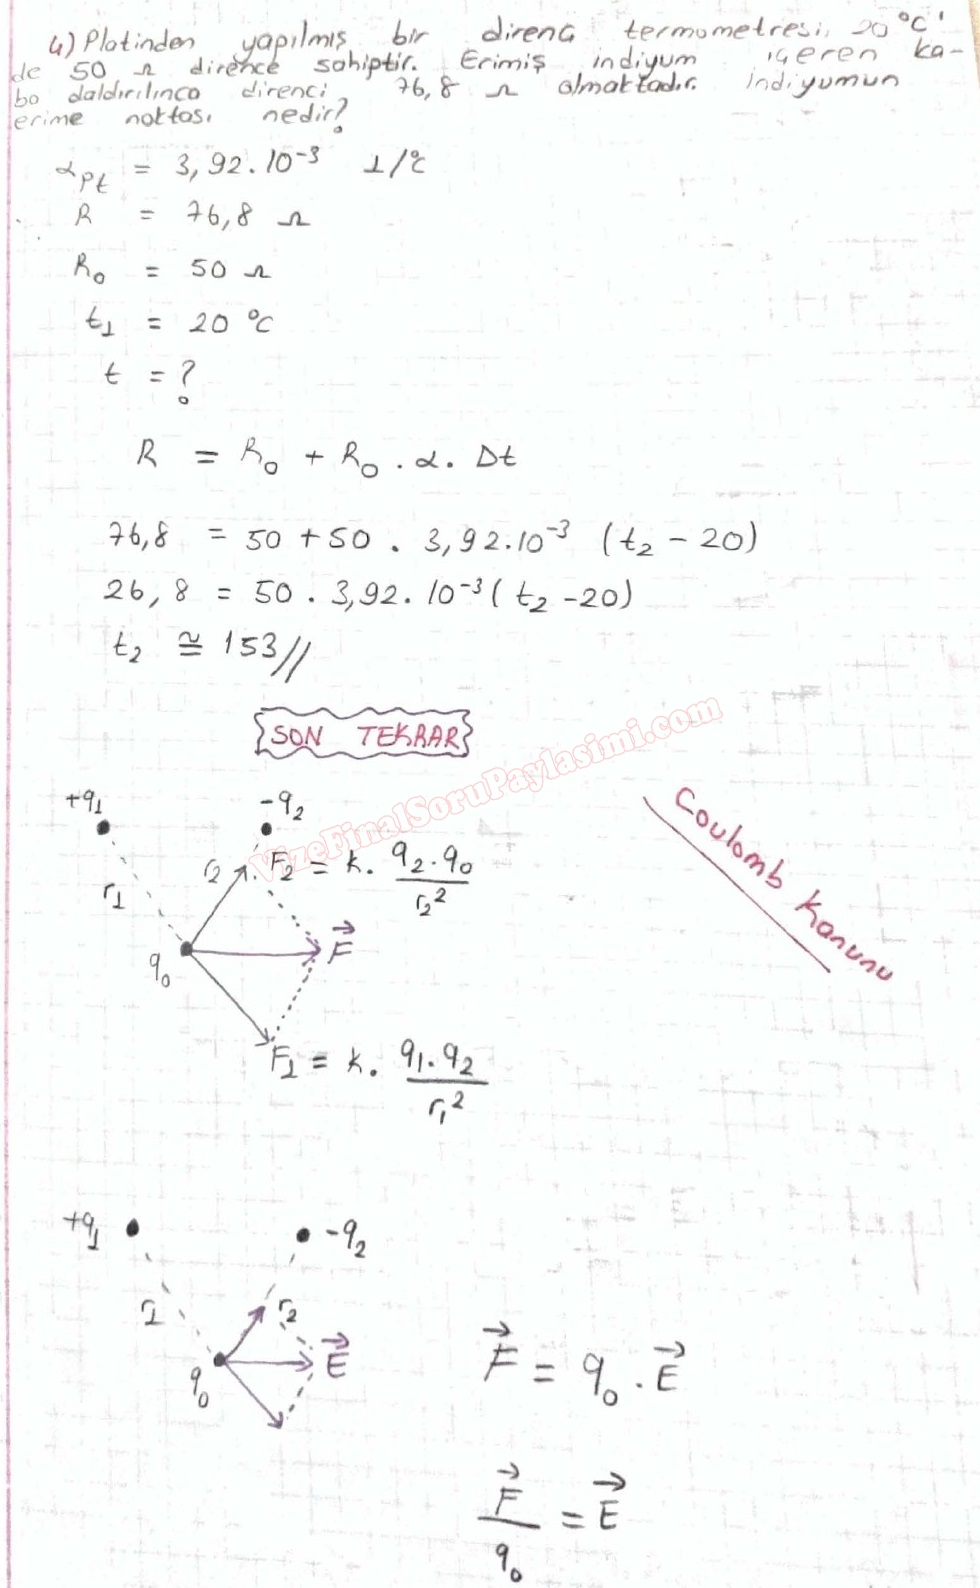 4) Platinden yapılmış bir direnc termometresi, 20 °C'
de 50 Ω dirence sahiptir. Erimiş indiyum içeren ka-
ba daldırılınca direnci 76,8 Ω olmaktadır. İndiyumun
erime noktası nedir?
αPt = 3,92.10⁻³ 1/°C
R = 76,8 Ω
R₀ = 50 Ω
t₁ = 20 °C
t = ?
R = R₀ + R₀ . α . Δt
76,8 = 50 + 50 . 3,92.10⁻³ (t₂ - 20)
26,8 = 50 . 3,92. 10⁻³ (t₂ -20)
t₂ ≅ 153//
SON TEKRAR
VizeFinalSoruPaylasimi.com
Coulomb Kanunu
+q₁
-q₂
r₁
r₂
F₂ = k. q₂.q₀ / r₂²
q₀
F⃗
F₁ = k. q₁.q₂ / r₁²
+q₁
-q₂
r₂
q₀
E⃗
F⃗ = q₀ . E⃗
F⃗ / q₀ = E⃗